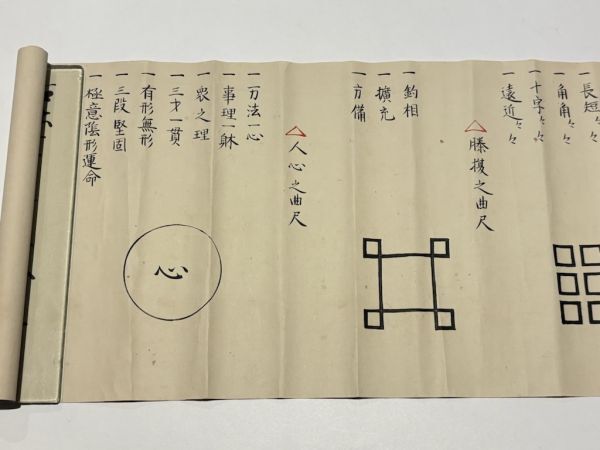 一 長短〻〻
一 角角〻〻
一 十字〻〻
一 遠近〻〻
勝擾之曲尺
一 釣相
一 擴充
一 方備
人心之曲尺
一 万法一心
一 事理一躰
一 衆之理
一 三才一貫
一 有形無形
一 三段堅固
一 極意陰形運命
心